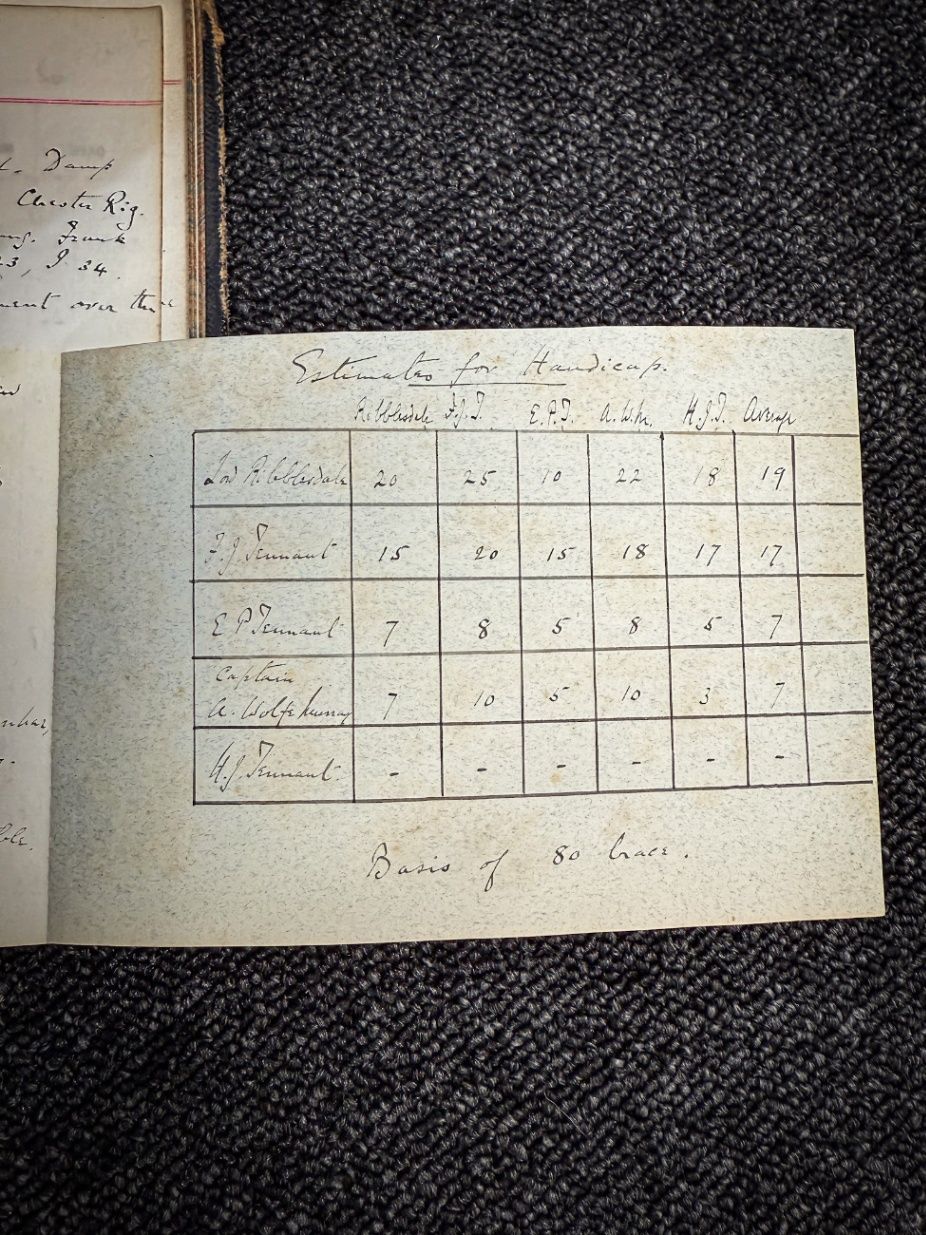 Damp
Chester Rig.
Frank
23, J 34.
ment over the
Estimates for Handicap.
Ribblesdale F.J.T. E.P.T. A.W.M. H.J.T. Average
Lord Ribblesdale 20 25 10 22 18 19
F.J. Tennant 15 20 15 18 17 17
E P Tennant 7 8 5 8 5 7
Captain
A. Wolfe Murray 7 10 5 10 3 7
H.J. Tennant. - - - - - -
Basis of 80 brace.